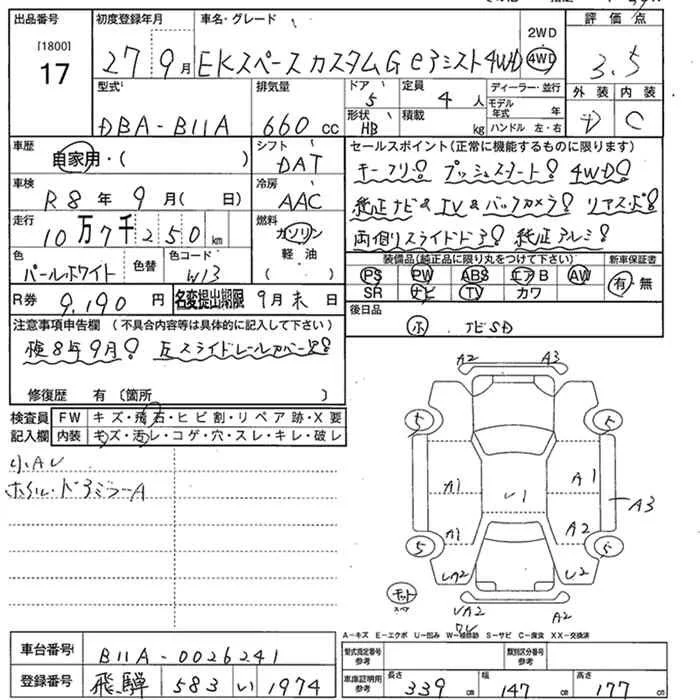 出品番号 初度登録年月 車名・グレード 2WD 評価点
[1800]
17 27 9月 EKスペースカスタムG eアシスト4WD 4WD 3.5
型式 排気量 ドア 5 定員 4人 ディーラー・並行 外装 内装
モデル年式 年
DBA-B11A 660cc 形状 HB 積載 kg ハンドル 左・右 D C
車歴 自家用・( ) シフト DAT セールスポイント(正常に機能するものに限ります)
キーフリー! プッシュスタート! 4WD!
車検 R8年9月( 日) 冷房 AAC 純正ナビ&TV&バックカメラ!
走行 10万7千250km 燃料 ガソリン 両側スライドドア! 純正アルミ!
軽油
( )
色 パールホワイト 色替 色コード W13 装備品(純正品に限り丸をつけて下さい) 新車保証書
PS PW ABS エアB AW 有・無
SR ナビ TV カワ
R券 9,190円 名変提出期限 9月末日 後日品
注意事項申告欄 (不具合内容等は具体的に記入して下さい) ホ ナビSD
検8年9月! 左スライドレールカバー欠!
修復歴 有(箇所 )
検査員記入欄 FW キズ・飛石・ヒビ割・リペア跡・X要
内装 キズ・汚レ・コゲ・穴・スレ・キレ・破レ
小AU
ホイル・ドアミラーA
A2 A3
5 5
A1 U1 A1 A3
A1 A2
5 5
UA2 U2
スペア
UA2 A2
A-キズ E-エクボ U-凹み W-補修跡 S-サビ C-腐食 XX-交換済
車台番号 B11A-0026241 型式指定番号 参考 類別区分番号 参考
登録番号 飛騨 583 い 1974 車庫証明用 参考 長さ 339cm 幅 147cm 高さ 177cm